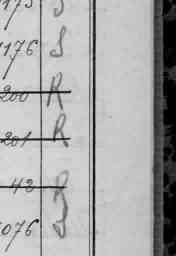 1175 S
1176 S
200 R
201 R
42 R
1076 S